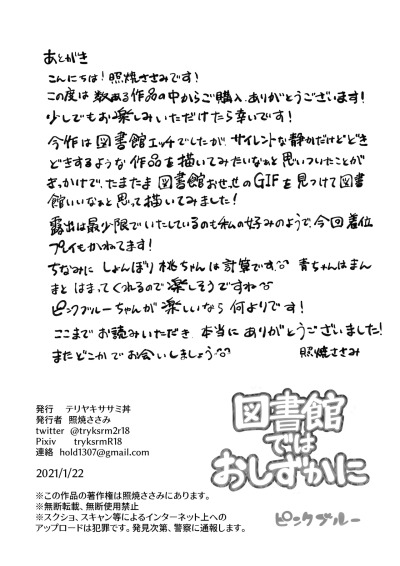 あとがき
こんにちは！照焼ささみです！
この度は数ある作品の中からご購入、ありがとうございます！
少しでもお楽しみいただけたら幸いです！
今作は図書館エッチでしたが、サイレントな静かだけどどき
どきするような作品を描いてみたいなぁと思いついたことが
きっかけで、たまたま図書館おせせのGIFを見つけて図書
館いいなぁと思って描いてみました！
露出は最少限でいたしているのも私の好みのようで、今回着位
プイもかねてます！
ちなみにしょんぼり桃ちゃんは計算です 青ちゃんはまん
まとはまってくれるので楽しそうですね
ピンクブルーちゃんが楽しいなら何よりです！
ここまでお読みいただき、本当にありがとうございました！
またどこかでお会いしましょう 照焼ささみ
発行 テリヤキササミ丼
発行者 照焼ささみ
twitter @tryksrm2r18
Pixiv tryksrmR18
連絡 hold1307@gmail.com
2021/1/22
※この作品の著作権は照焼ささみにあります。
※無断転載、無断使用禁止
※スクショ、スキャン等によるインターネット上への
アップロードは犯罪です。発見次第、警察に通報します。
図書館
では
おしずかに
ピンクブルー